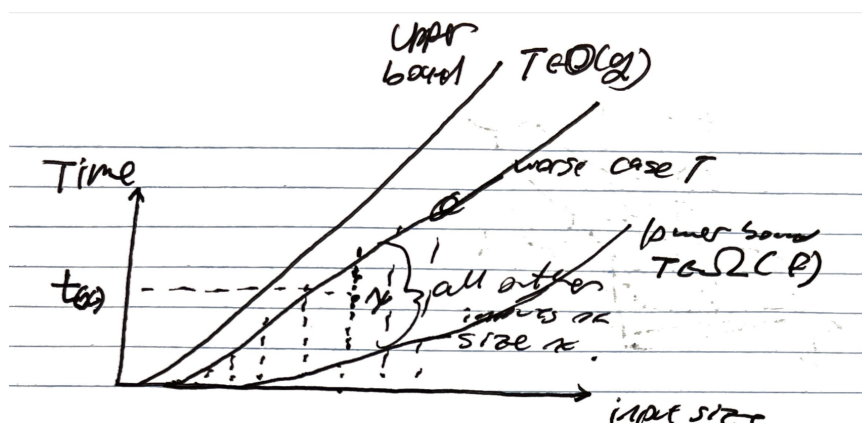 upper
bound
T∈O(g)
Time
worse case T
lower bound
T∈Ω(f)
t(x)
x
all other
inputs
size n
input size